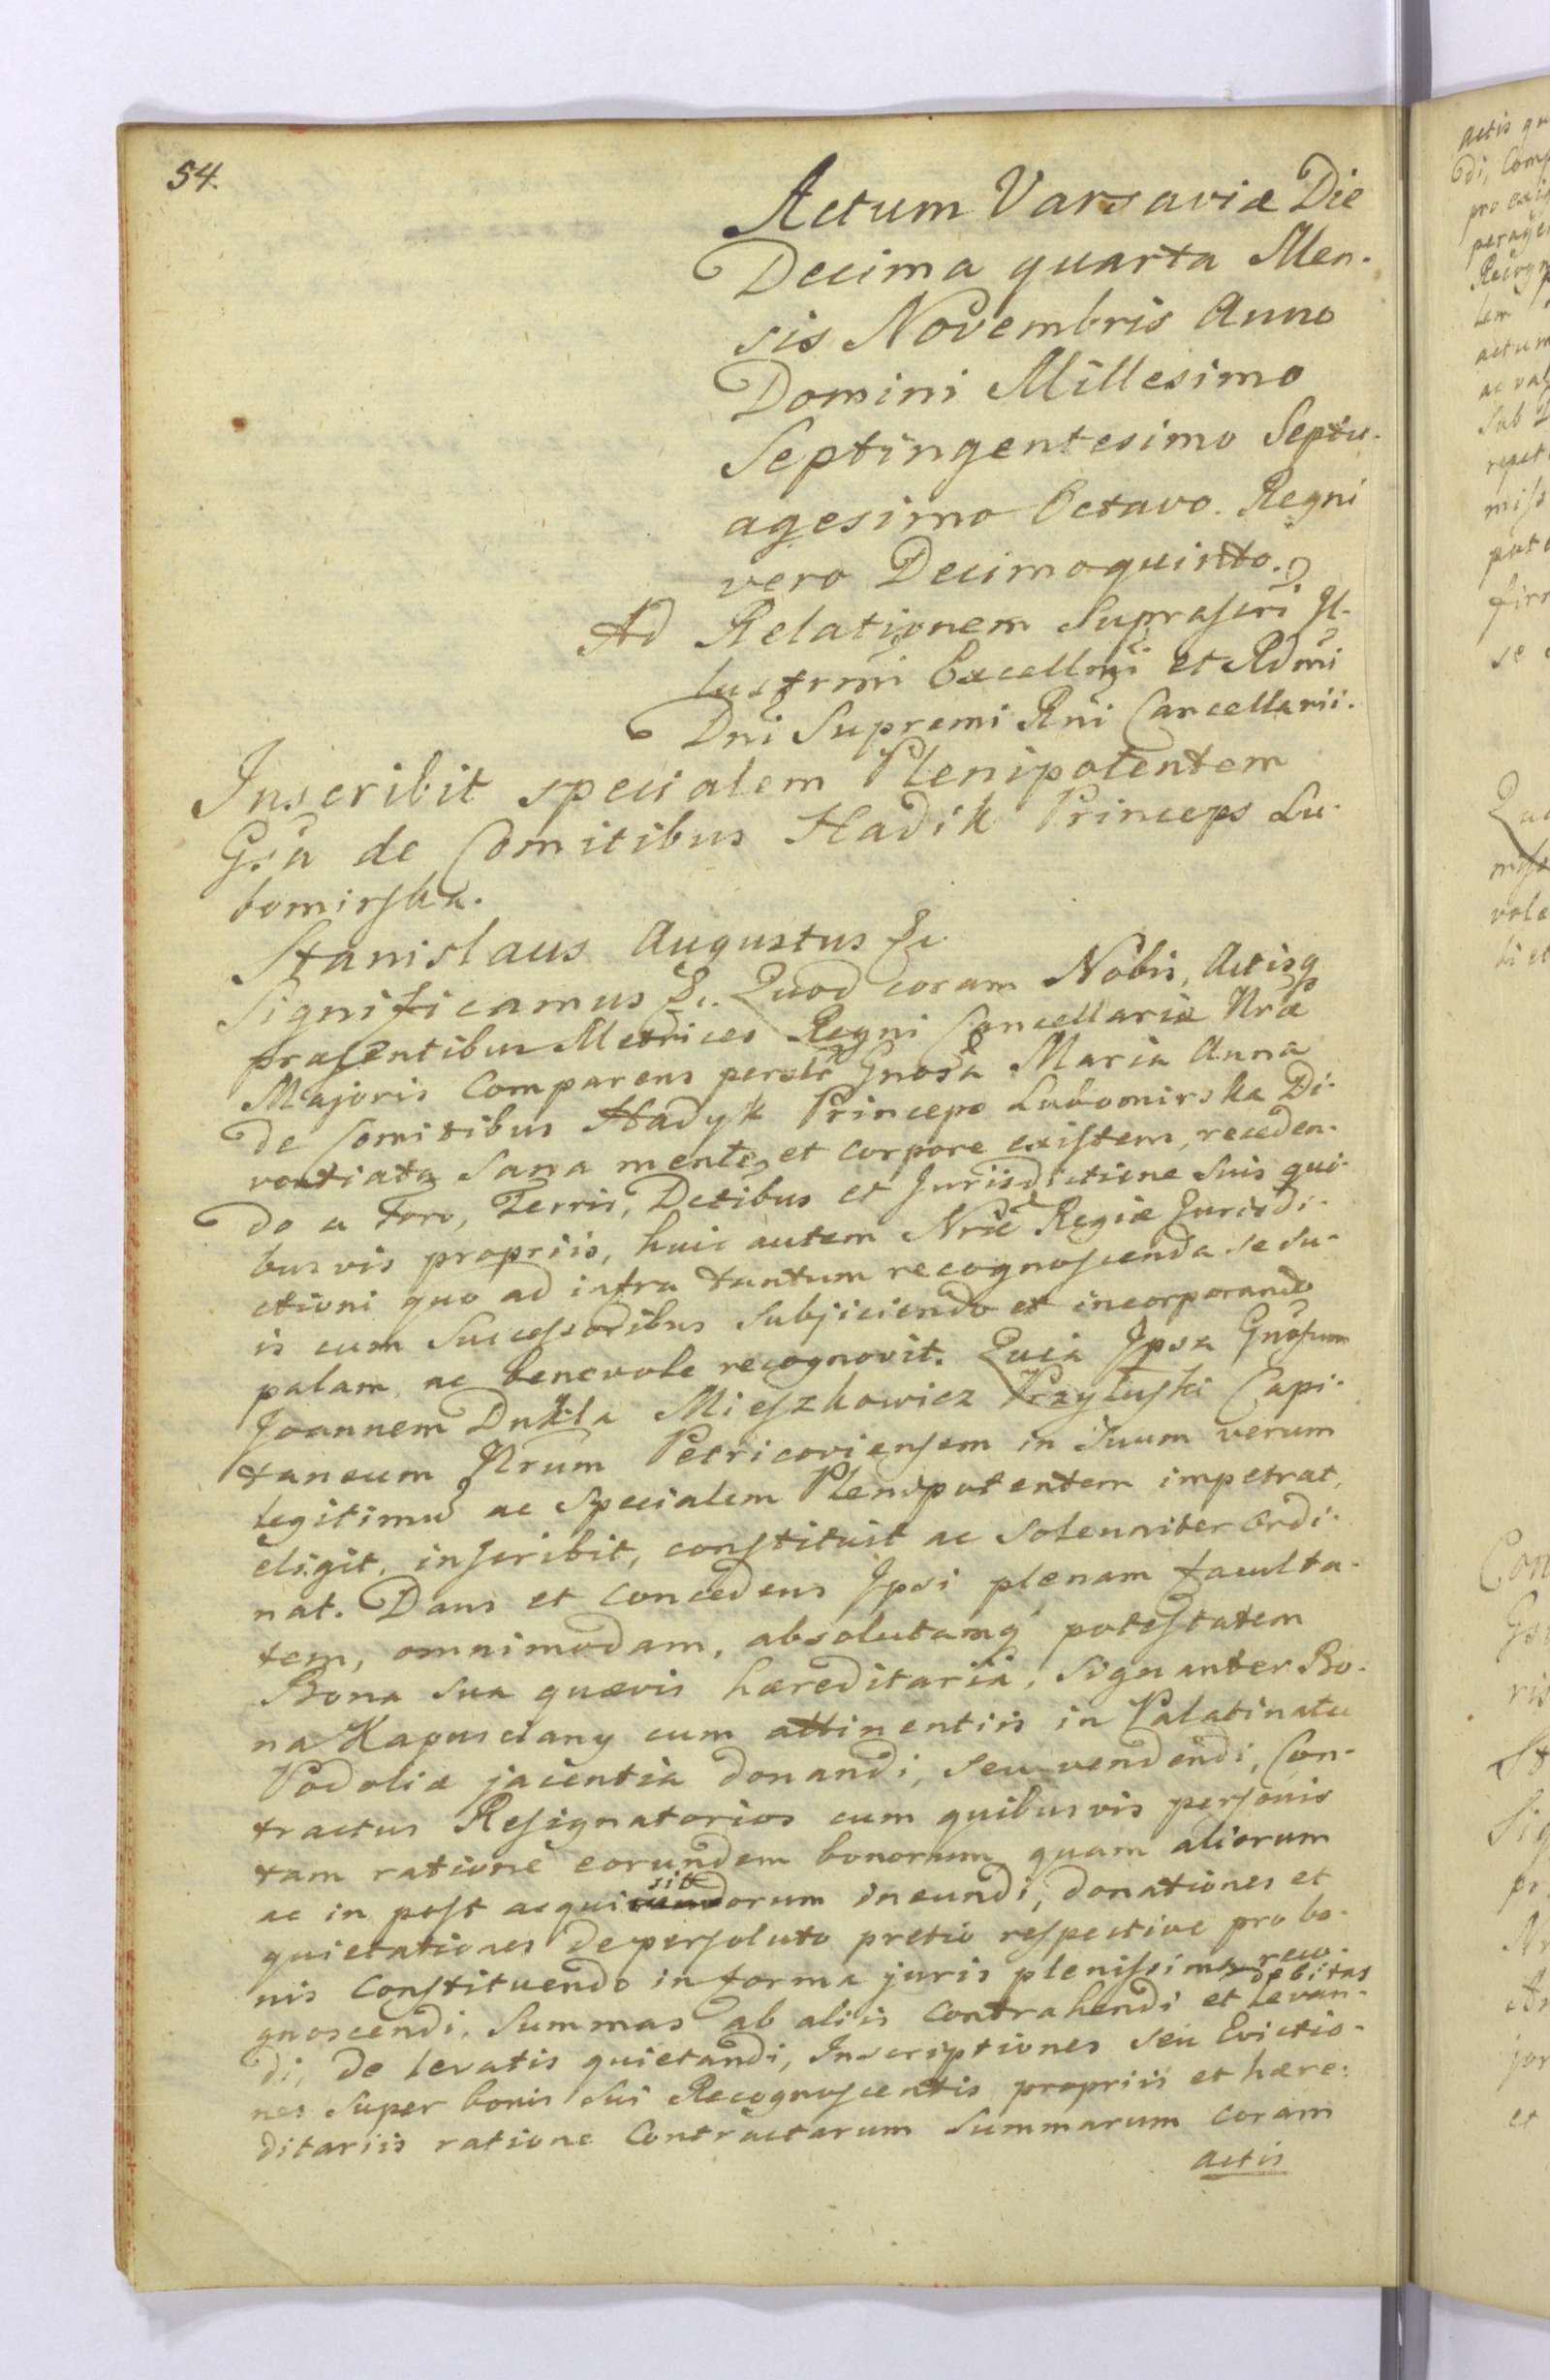 54.
Actum Varsaviæ Die
Decima quarta Men-
sis Novembris Anno
Domini Millesimo
Septingentesimo Septu-
agesimo Octavo. Regni
vero Decimoquinto.
Ad Relationem Suprascri Il-
lustrmi Excellmi et Rdmi
Dni Supremi Rni Cancellarii.
Inscribit specialem Plenipotentem
Gsa de Comitibus Hadik Princeps Lu-
bomirska.
Stanislaus Augustus &c.
Significamus &c. Quod coram Nobis, Actisq
præsentibus Metrices Regni Cancellariæ Nræ
Majoris Comparens personlr Gnosa Maria Anna
de Comitibus Hadyk Princeps Lubomirska Di-
vortiata Sana mente et corpore existens, receden-
do a Foro, Terris, Detibus et Jurisdictione suis qui-
busvis propriis, huic autem Nræ Regiæ Jurisdi-
ctioni quo ad infra tantum recognoscenda se su-
is cum Successoribus Subjiciendo et incorporando
palam, ac benevole recognovit. Quia Ipsa Gnosum
Joannem Dukla Mieszkowicz Przyłuski Capi-
taneum Nrum Petricoviensem in Suum verum
legitimu ac Specialem Plenipotentem impetrat,
eligit, inscribit, constituit ac Solenniter ordi-
nat. Dans et concedens Ipsi plenam faculta-
tem, omnimodam, absolutamq potestatem
Bona sua quævis hæreditaria, signanter Bo-
na Kapusciany cum attinentiis in Palatinatu
Podoliæ jacentia donandi, seu vendendi, Con-
tractus Resignatorios cum quibusvis personis
tam ratione eorundem bonorum quam aliorum
ac in post acquisitdorum ineundi, donationes et
quietationes de persoluto pretio respective pro bo-
nis Constituendo in forma juris plenissima reco-
gnoscendi, Summas ab aliis contrahendi et debitas levan-
di, de levatis quietandi, Inscriptiones seu Evictio-
nes Super bonis sui Recognoscentis propriis et hære-
ditariis ratione Contractarum Summarum coram
actis